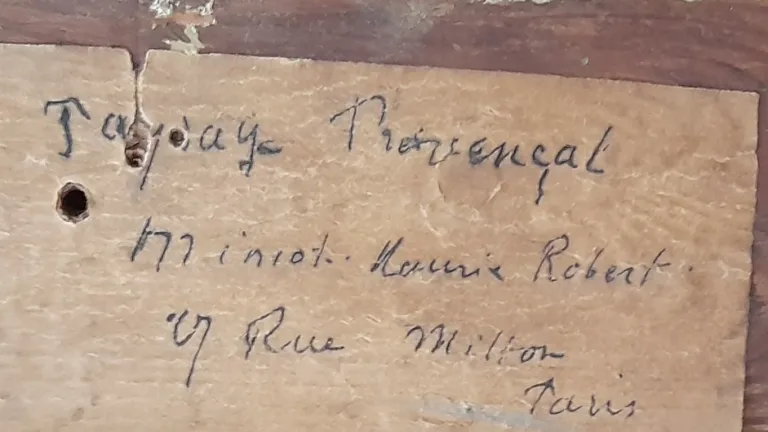 Paysage Provençal
Miniot. Maurice Robert.
27 Rue Milton
Paris